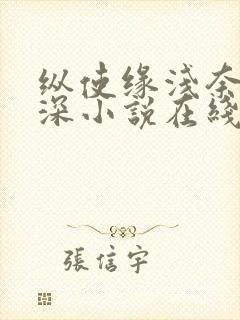 纵使缘浅奈
深小説在綫
張信宇